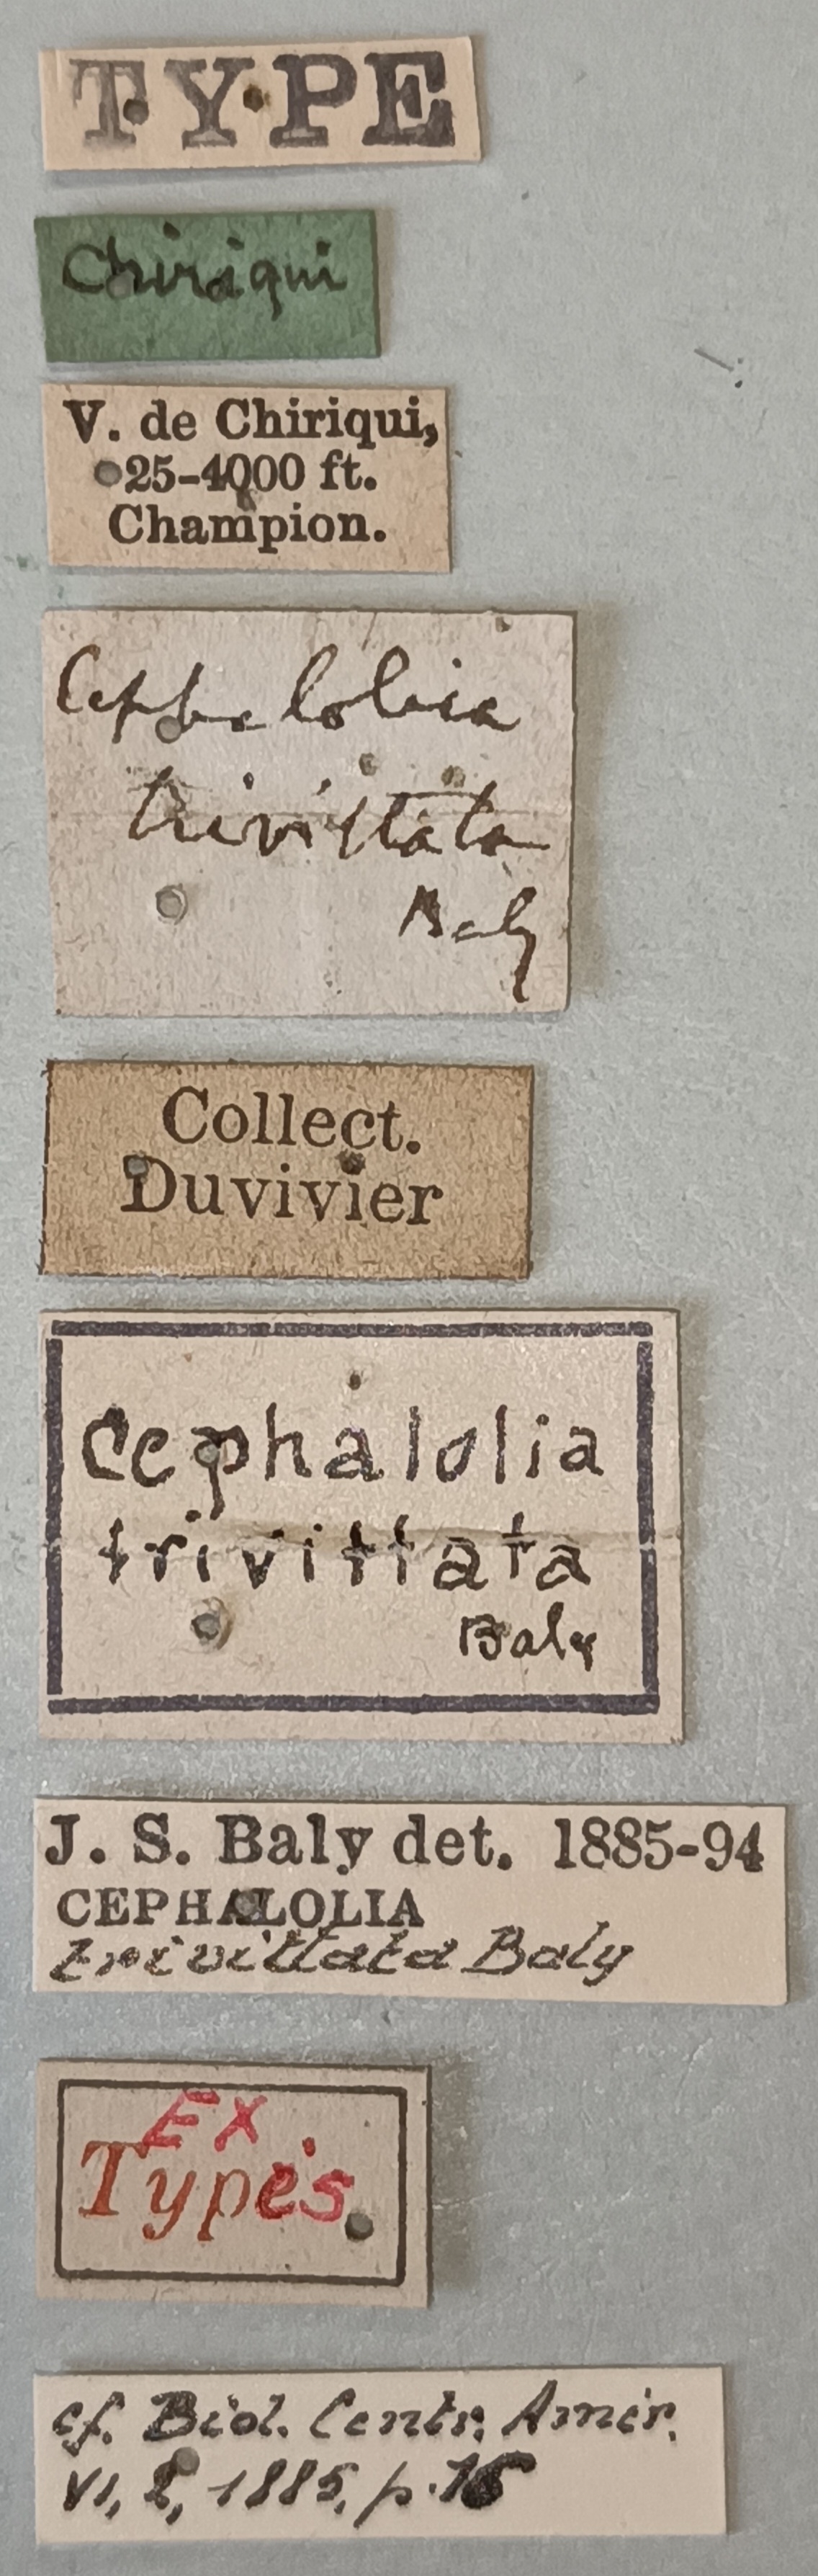 TYPE
Chiriqui
V. de Chiriqui,
25-4000 ft.
Champion.
Cephalolia
trivittata
Baly
Collect.
Duvivier
Cephalolia
trivittata
Baly
J. S. Baly det. 1885-94
CEPHALOLIA
trivittata Baly
Ex
Types.
cf. Biol. Centr. Amer.
VI, 2, 1885, p.